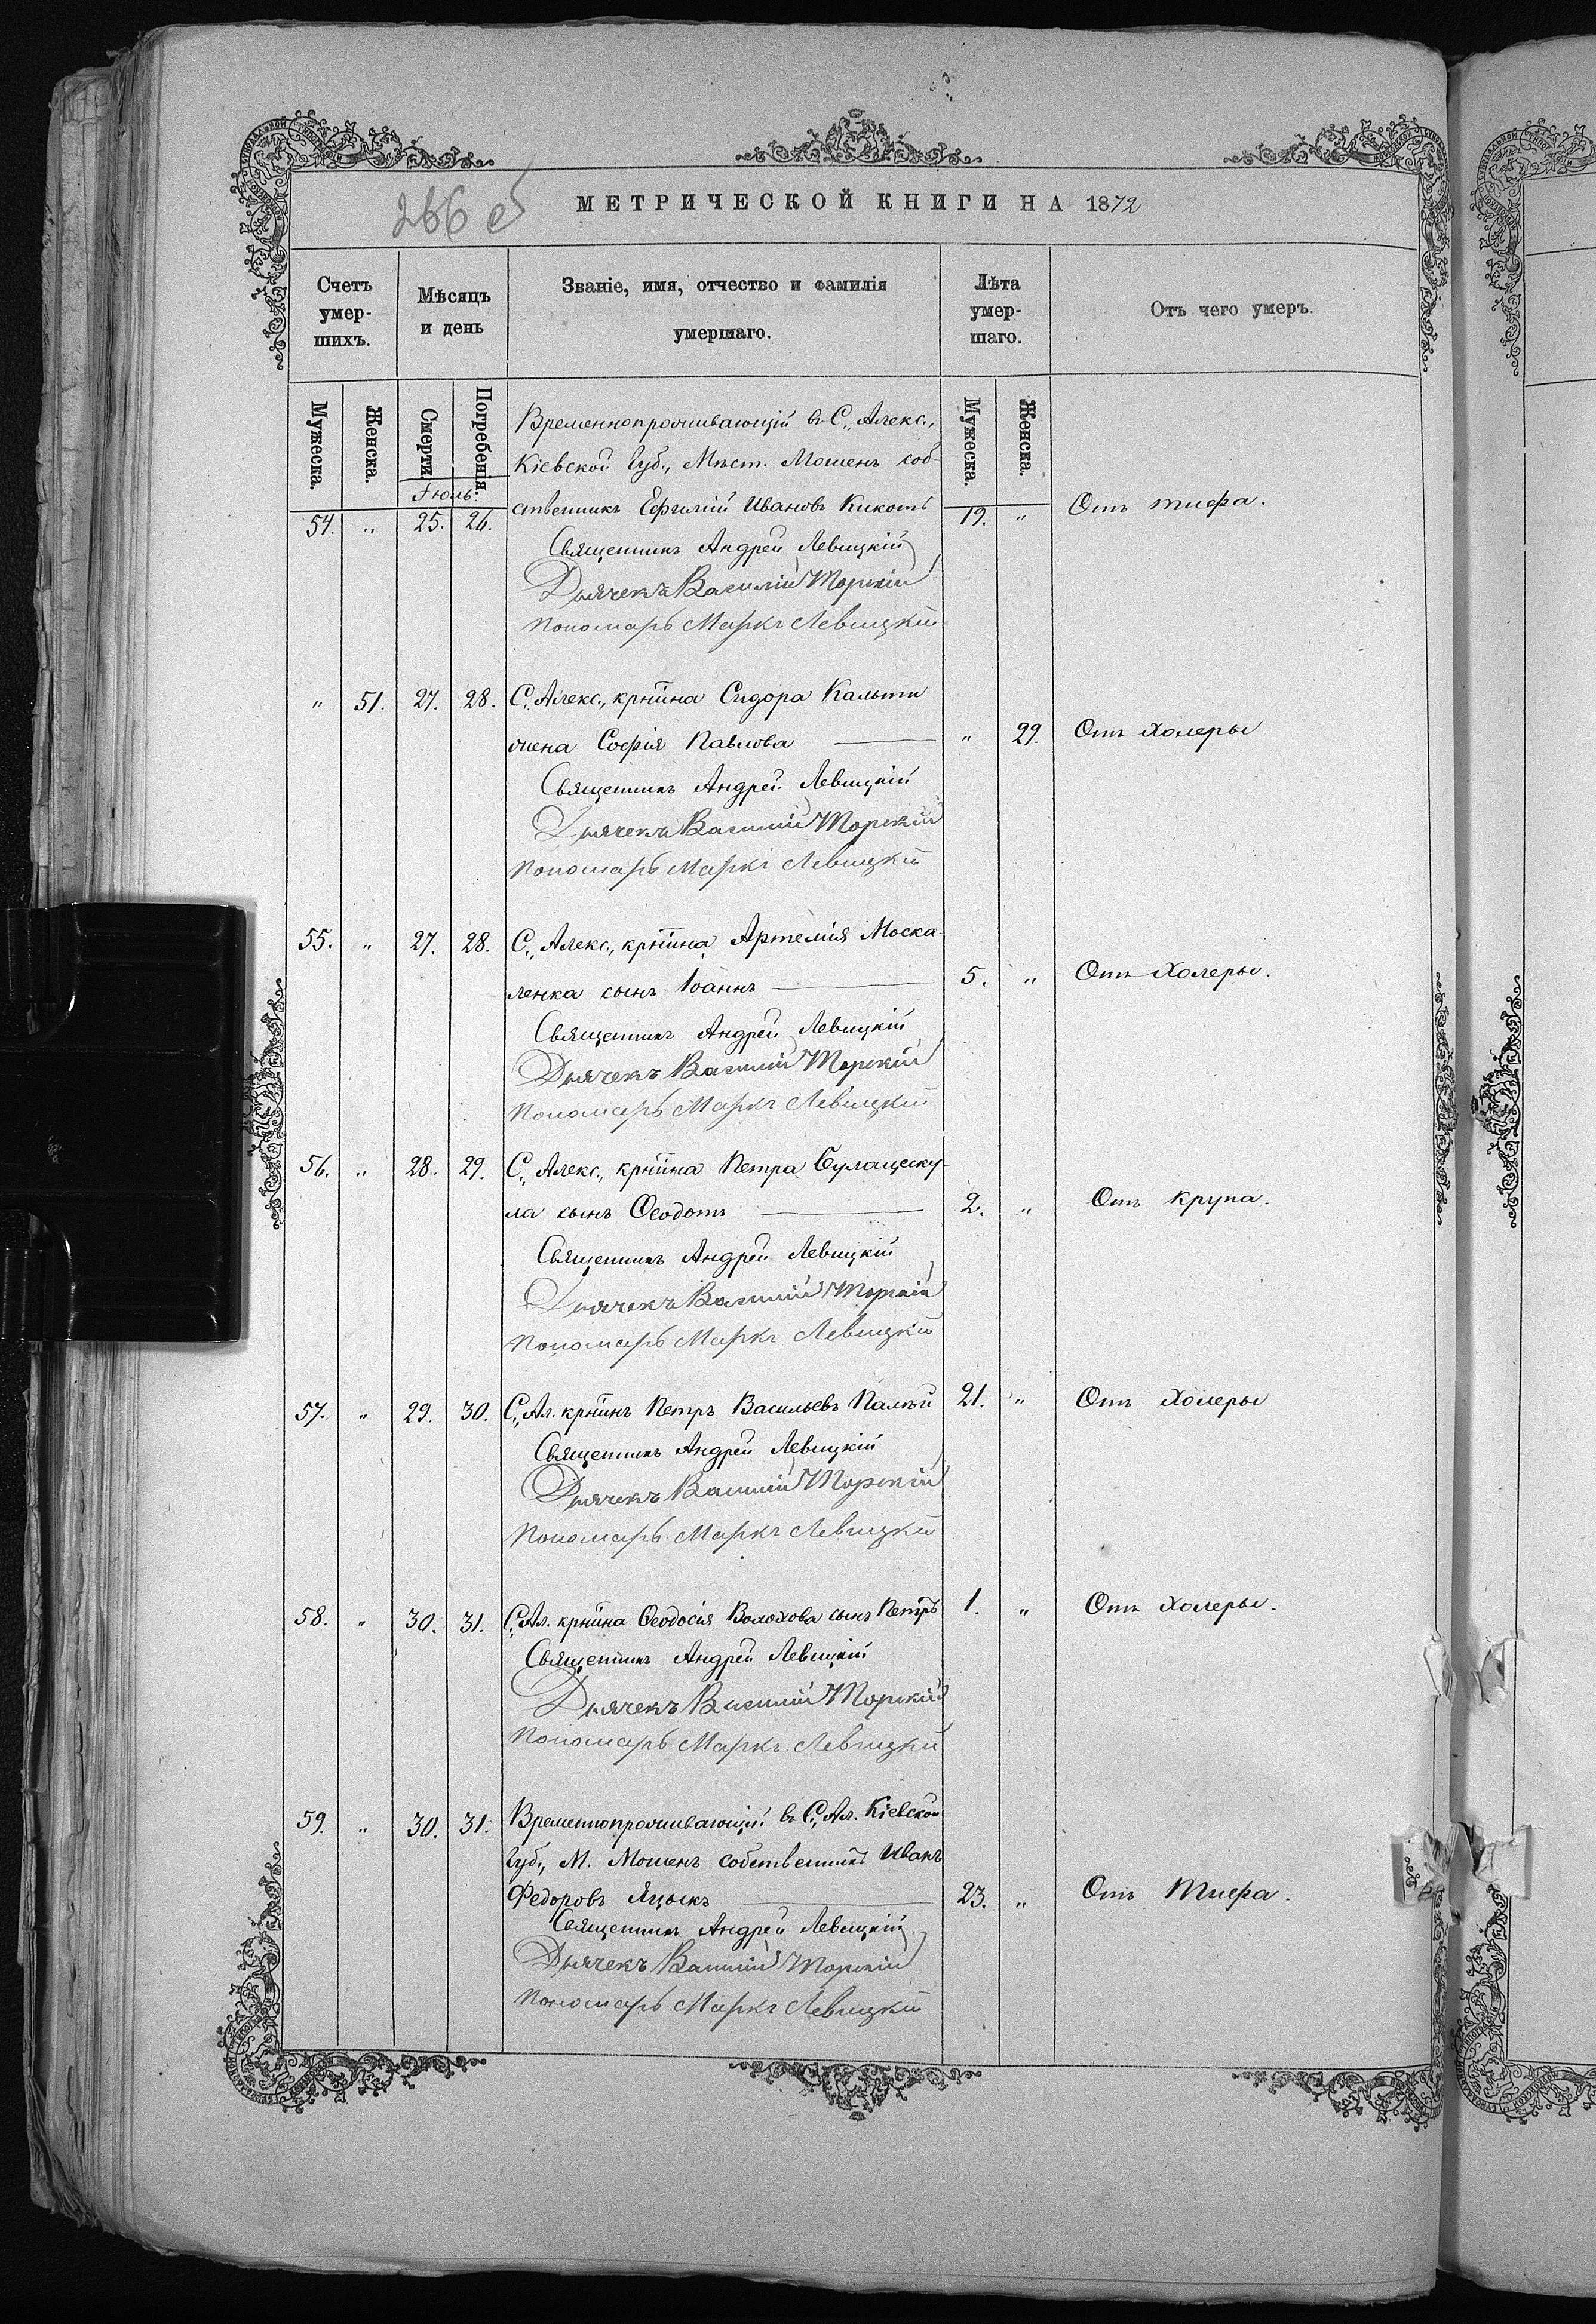 266 об
МЕТРИЧЕСКОЙ КНИГИ НА 1872
Счетъ умер-шихъ.
Мѣсяцъ и день
Званіе, имя, отчество и фамилія
умершаго.
Лѣта умер-шаго.
Отъ чего умеръ.
Мужеска. Женска. Смерти. Погребенія. Мужеска. Женска.
Временнопроживающій въ С., Алекс.,
Кіевской Губ., Мѣст. Мошенъ соб-
Іюль.
54. „ 25. 26. ственникъ Ефимій Ивановъ Кикоть 19. „ Отъ тифа.
Священникъ Андрей Левицкій
Дьячекъ Василій Торскій
Пономарь Маркъ Левицкій
„ 51. 27. 28. С., Алекс., крѣтина Сидора Калыти
жена Софія Павлова „ 29. Отъ холеры
Священникъ Андрей Левицкій
Дьячекъ Василій Торскій
Пономарь Маркъ Левицкій
55. „ 27. 28. С., Алекс., крѣтина Артемія Моска-
ленка сынъ Іоаннъ 5. „ Отъ холеры.
Священникъ Андрей Левицкій
Дьячекъ Василій Торскій
Пономарь Маркъ Левицкій
56. „ 28. 29. С., Алекс., крѣтина Петра
ла сынъ Ѳеодотъ 2. „ Отъ крупа.
Священникъ Андрей Левицкій
Дьячекъ Василій Торскій
Пономарь Маркъ Левицкій
57. „ 29. 30. С., Ал. крѣтинъ Петръ Васильевъ Палѣй 21. „ Отъ холеры
Священникъ Андрей Левицкій
Дьячекъ Василій Торскій
Пономарь Маркъ Левицкій
58. „ 30. 31. С., Ал. крѣтина Ѳеодосія Волохова сынъ Петръ 1. „ Отъ холеры.
Священникъ Андрей Левицкій
Дьячекъ Василій Торскій
Пономарь Маркъ Левицкій
59. „ 30. 31. Временнопроживающій въ С., Ал. Кіевской
Губ., М. Мошенъ собственникъ Иванъ
Федоровъ Яцыкъ 23. „ Отъ Тифа.
Священникъ Андрей Левицкій
Дьячекъ Василій Торскій
Пономарь Маркъ Левицкій